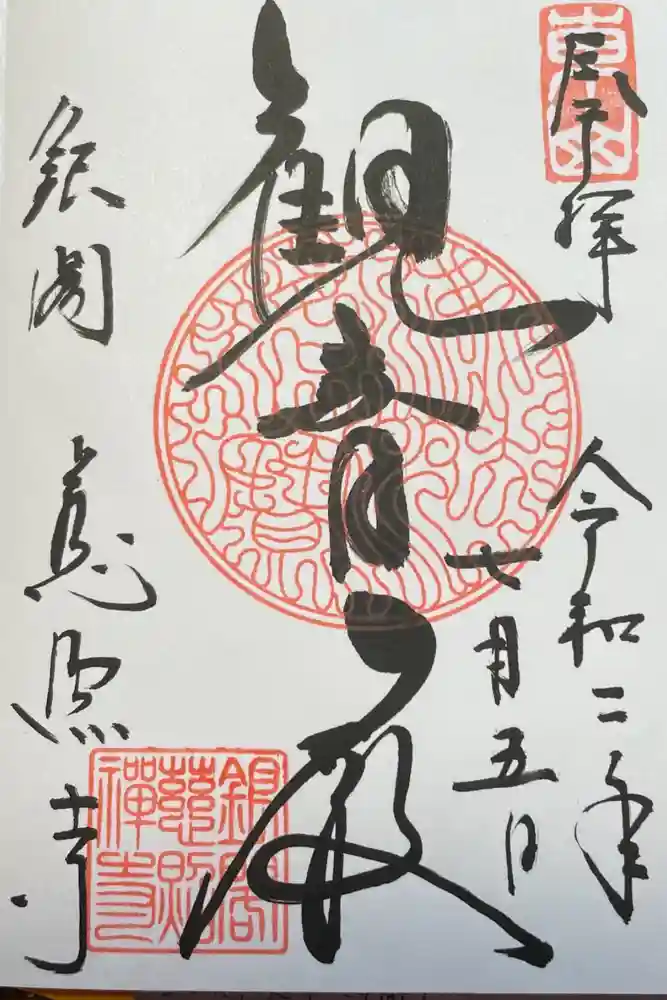 奉拝
令和二年
七月五日
観音殿
銀閣 慈照寺
銀閣
慈照
禪寺